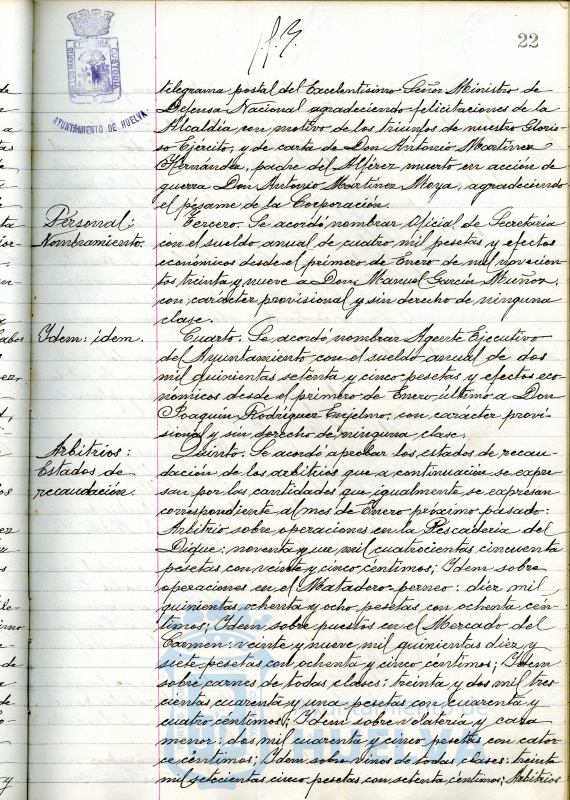 22
AYUNTAMIENTO DE HUELVA
telegrama postal del Excelentísimo Señor Ministro de
Defensa Nacional agradeciendo felicitaciones de la
Alcaldía con motivo de los triunfos de nuestro Glorio-
so Ejercito, y de carta de Don Antonio Martínez
Hernández, padre del Alférez muerto en acción de
guerra Don Antonio Martínez Moya, agradeciendo
el pésame de la Corporación.
Personal:
Nombramiento.
Tercero. Se acordó nombrar Oficial de Secretaría
con el sueldo anual de cuatro mil pesetas y efectos
económicos desde el primero de Enero de mil novecien-
tos treinta y nueve a Don Manuel García Muñoz,
con carácter provisional y sin derecho de ninguna
clase.
Idem: idem.
Cuarto. Se acordó nombrar Agente Ejecutivo
del Ayuntamiento con el sueldo anual de dos
mil quinientas setenta y cinco pesetas y efectos eco-
nómicos desde el primero de Enero último a Don
Joaquín Rodríguez con carácter provi-
sional y sin derecho de ninguna clase.
Arbitrios:
Estados de
recaudación.
Quinto. Se acordó aprobar los estados de recau-
dación de los arbitrios que a continuación se expre-
san por las cantidades que igualmente se expresan
correspondiente al mes de Enero próximo pasado:
Arbitrio sobre operaciones en la Pescadería del
Dique: noventa y un mil cuatrocientas cincuenta
pesetas con veinte y cinco céntimos; Idem sobre
operaciones en el Matadero perneo: diez mil
quinientas ochenta y ocho pesetas con ochenta cén-
timos; Idem sobre puestos en el Mercado del
Carmen: veinte y nueve mil quinientas diez y
siete pesetas con ochenta y cinco céntimos; Idem
sobre carnes de todas clases: treinta y dos mil tres
cientas cuarenta y una pesetas con cuarenta y
cuatro céntimos; Idem sobre volatería y caza
menor: dos mil cuarenta y cinco pesetas con cator-
ce céntimos; Idem sobre vinos de todas clases: treinta
mil setecientas cinco pesetas con setenta céntimos; Arbitrios
HUELVA